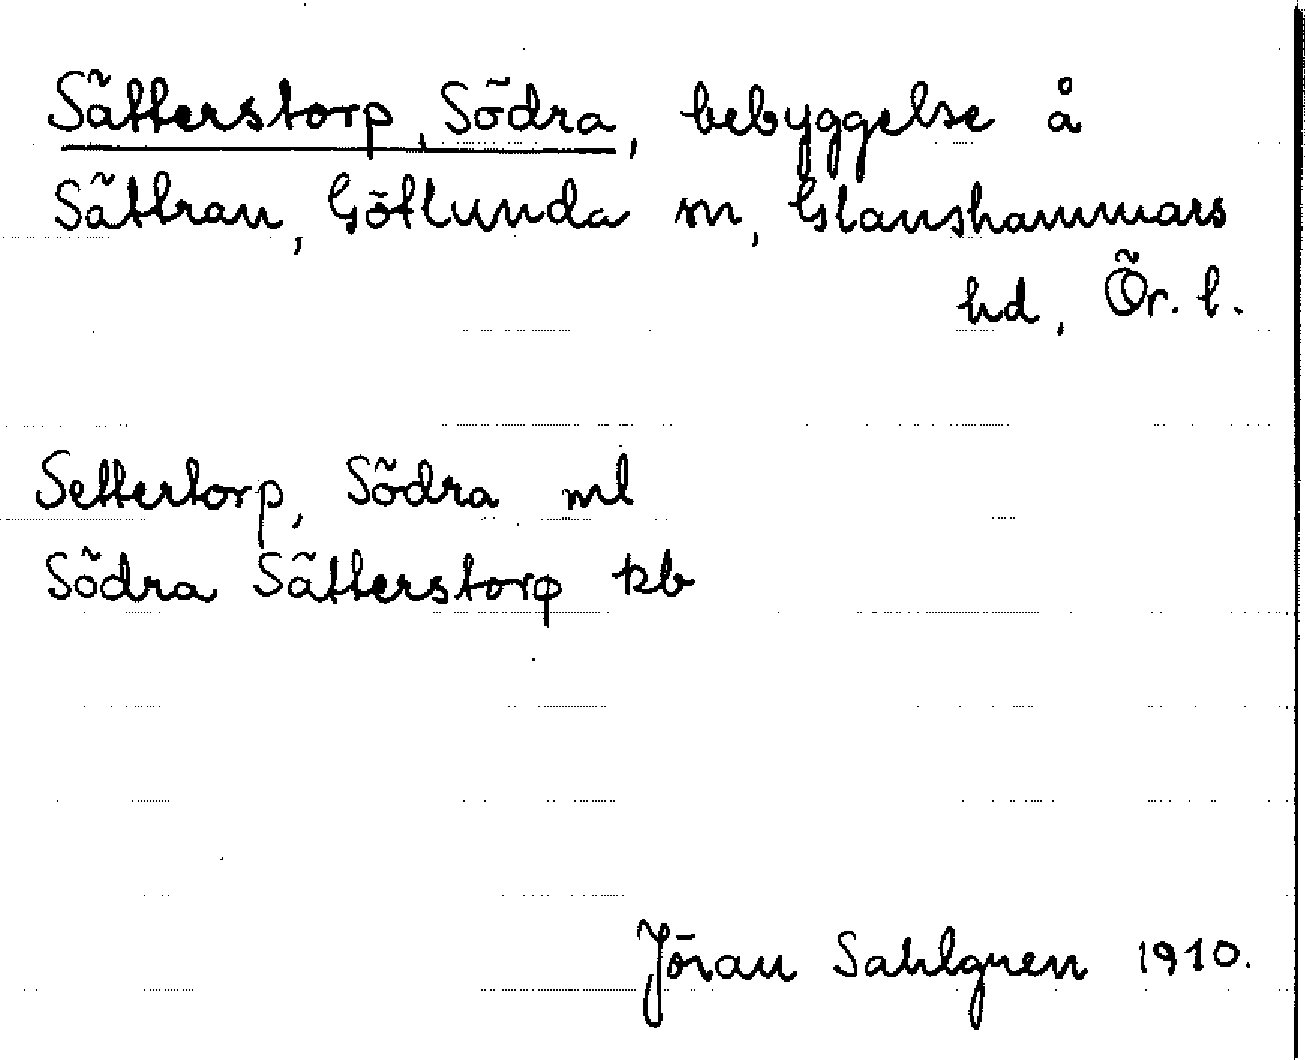 Sätterstorp, Södra, bebyggelse å
Sättran, Götlunda sn, Glanshammars
hd, Ör. l.
Settertorp, Södra ml
Södra Sätterstorp kb
Jöran Sahlgren 1910.